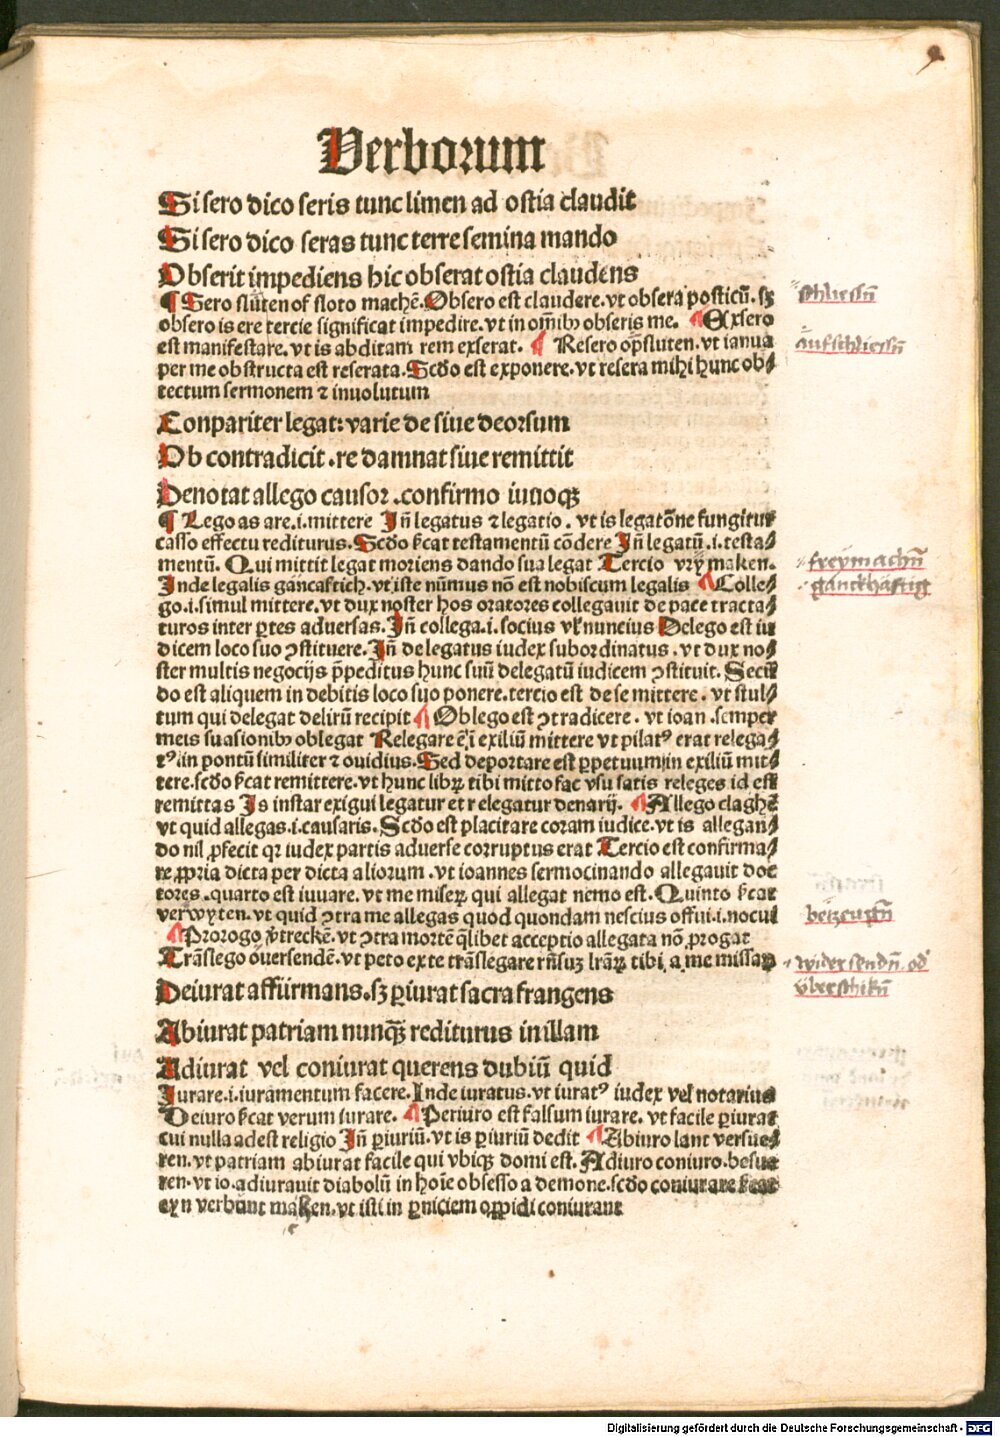 Verborum
Si sero dico seris tunc limen ad ostia claudit
Si sero dico seras tunc terre semina mando
Obserit impediens hic obserat ostia claudens
¶ Sero slutē of sloto machē. Obsero est claudere. vt obsera posticū. sꝫ
schliessn̄
obsero is ere tercie significat impedire. vt in om̄ibꝫ obseris me. ¶ Exsero
est manifestare. vt is abditam rem exserat. ¶ Resero opsluten. vt ianua
aufschliessn̄
per me obstructa est reserata. Scd̄o est exponere. vt resera mihi hunc ob⸗
tectum sermonem ⁊ inuolutum
Conpariter legat: varie de siue deorsum
Ob contradicit. re damnat siue remittit
Denotat allego causor. confirmo iuuoqꝫ
¶ Lego as are. i. mittere Jn̄ legatus ⁊ legatio. vt is legatōne fungitur
casso effectu rediturus. Scd̄o s̄icat testamentū cōdere Jn̄ legatū. i. testa⸗
mentū. Qui mittit legat moriens dando sua legat Tercio vrÿ maken.
freÿmachn̄
Jnde legalis gancaftich. vt iste nūmus nō est nobiscum legalis ¶ Colle⸗
ganckhäftig
go. i. simul mittere. vt dux noster hos oratores collegauit de pace tracta⸗
turos inter ꝑtes aduersas. Jn̄ collega. i. socius vl̓ nuncius Delego est iu
dicem loco suo ꝯstituere. Jn̄ delegatus iudex subordinatus. vt dux no⸗
ster multis negocijs p̄peditus hunc suū delegatū iudicem ꝯstituit. Secū
do est aliquem in debitis loco suo ponere. tercio est de se mittere. vt stul⸗
tum qui delegat delirū recipit ¶ Oblego est ꝯtradicere. vt ioan. semper
meis suasionibꝫ oblegat Relegare ē i exiliū mittere vt pilatꝰ erat relega⸗
tꝰ in pontū similiter ⁊ ouidius. Sed deportare est ꝑpetuum in exiliū mit⸗
tere. scd̄o s̄icat remittere. vt hunc librꝫ tibi mitto fac vsu satis releges id est
remittas Js instar exigui legatur et relegatur denarij. ¶ Allego claghē
vt quid allegas. i. causaris. Scd̄o est placitare coram iudice. vt is allegan⸗
do nil ꝓfecit qꝛ iudex partis aduerse corruptus erat Tercio est confirma⸗
re ꝓpria dicta per dicta aliorum. vt ioannes sermocinando allegauit doc
tores. quarto est iuuare. vt me miserꝫ qui allegat nemo est. Quinto s̄icat
verwyten. vt quid ꝯtra me allegas quod quondam nescius offui. i. nocui
beizeugn̄
¶ Prorogo v̓treckē. vt ꝯtra mortē qlibet acceptio allegata nō ꝓrogat
Trāslego ouersendē. vt peto ex te trāslegare rn̄suꝫ lr̄aꝝ tibi a me missaꝝ
widersendn̄ . od̓
überschikn̄
Deiurat affirmans. sꝫ ꝑiurat sacra frangens
Abiurat patriam nunqꝫ rediturus in illam
Adiurat vel coniurat querens dubiū quid
Jurare. i. iuramentum facere. Jnde iuratus. vt iuratꝰ iudex vel notarius
Deiuro s̄icat verum iurare. ¶ Periuro est falsum iurare. vt facile ꝑiurat
cui nulla adest religio Jn̄ ꝑiuriū. vt is ꝑiuriū dedit ¶ Abiuro lant versue⸗
ren. vt patriam abiurat facile qui vbiqꝫ domi est. Adiuro coniuro. besue
ren. vt io. adiurauit diabolū in hoīe obsesso a demone. scd̄o coniurare s̄icat
eyn verbunt maken. vt isti in ꝑniciem oppidi coniurant
Digitalisierung gefördert durch die Deutsche Forschungsgemeinschaft - DFG